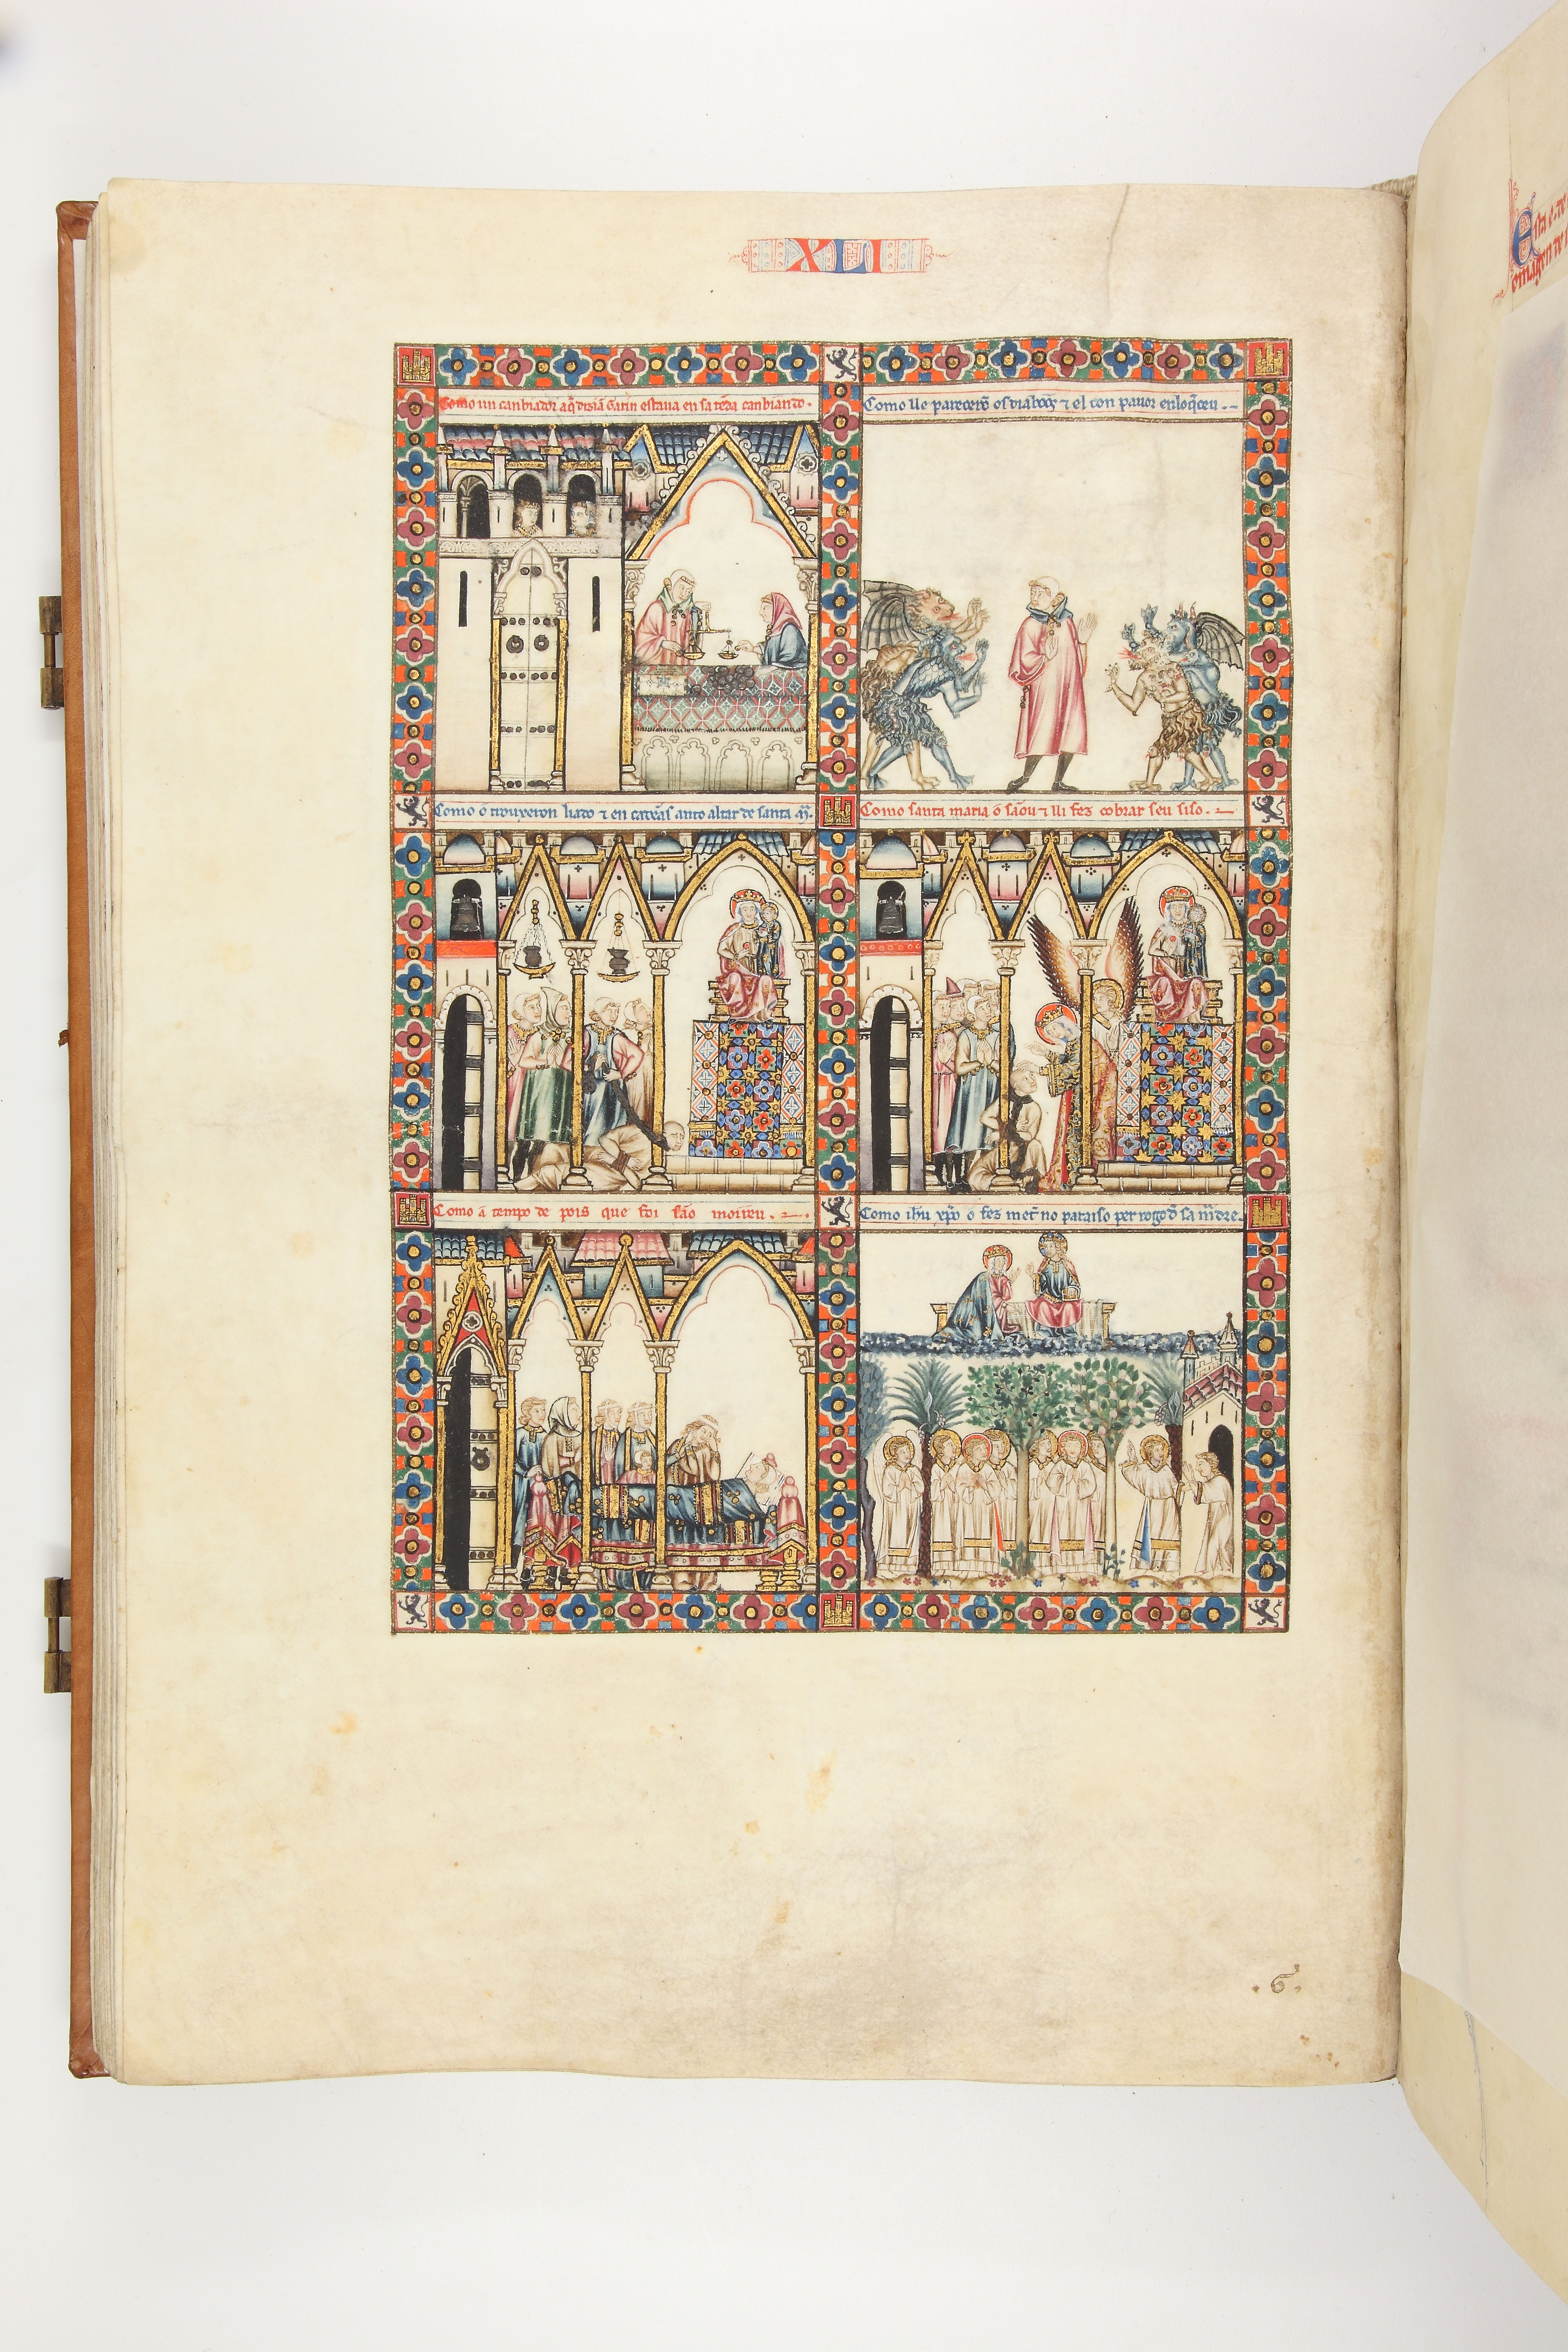 XLI
Como un canbiador a q̃ dizíã Garin estaua en sa tẽda canbiando.
Como lle parecerõ os diaboos ⁊ el con pauor enloq̃ceu.
Como o trouxeron liado ⁊ en cadẽas anto altar de santa Mª.
Como santa maria o sãou ⁊ lli fez cobrar seu siso.
Como a tempo de pois que foi são morreu.
Como ihũ xp̃o o fez met̃ no paraiso per rogo d̃ sa m̃dre.
Esta é
omagen
.6.